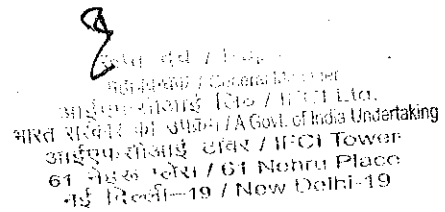 / General Manager
आईएफसीआई लि० / IFCI Ltd.
भारत सरकार का उपक्रम / A Govt. of India Undertaking
आईएफसीआई टावर / IFCI Tower
61 नेहरू प्लेस / 61 Nehru Place
नई दिल्ली-19 / New Delhi-19